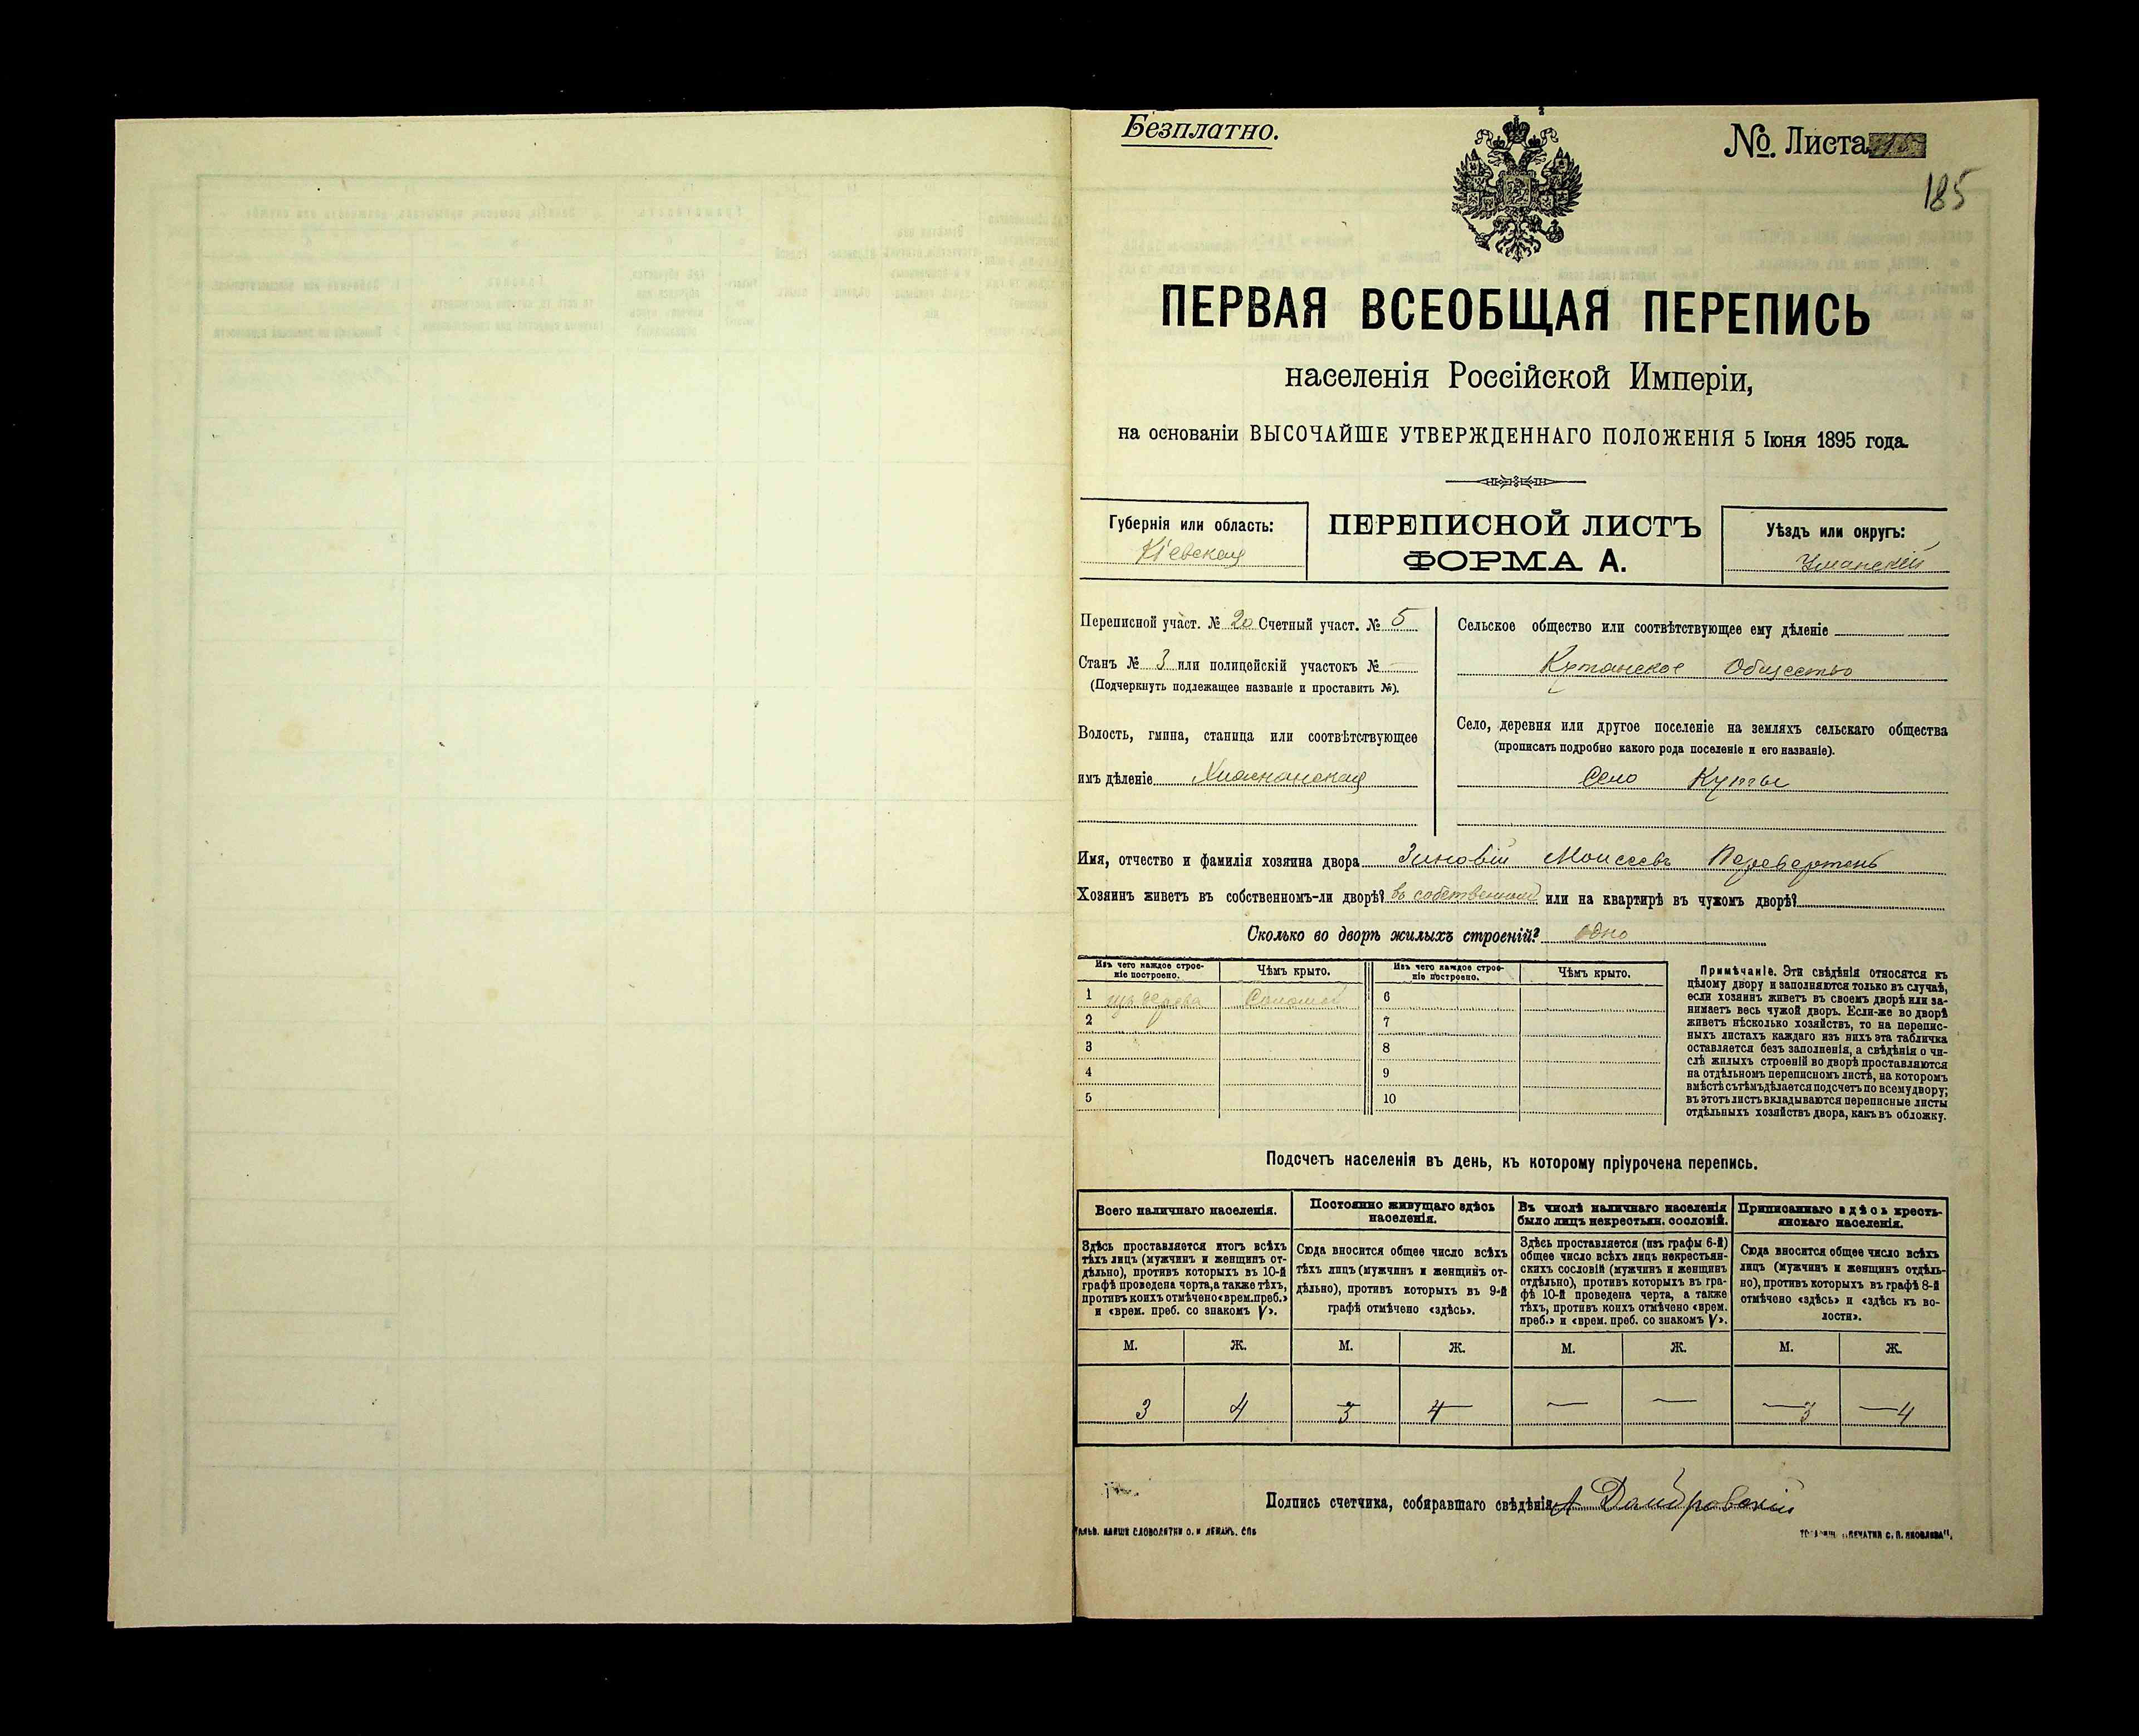 Безплатно.
№. Листа
185
ПЕРВАЯ ВСЕОБЩАЯ ПЕРЕПИСЬ
населенія Россійской Имперіи,
на основаніи ВЫСОЧАЙШЕ УТВЕРЖДЕННАГО ПОЛОЖЕНІЯ 5 Іюня 1895 года.
Губернія или область:
Кіевская
ПЕРЕПИСНОЙ ЛИСТЪ
ФОРМА А.
Уѣздъ или округъ:
Уманскій
Переписной участ. № 20 Счетный участ. № 5
Станъ № 3 или полицейскій участокъ № —
(Подчеркнуть подлежащее названіе и проставить №).
Волость, гмина, станица или соотвѣтствующее
имъ дѣленіе
Сельское общество или соотвѣтствующее ему дѣленіе
Кутанское Общество
Село, деревня или другое поселеніе на земляхъ сельскаго общества
(прописать подробно какого рода поселеніе и его названіе).
Село Куты
Имя, отчество и фамилія хозяина двора Зиновій Моисеевъ Перевертень
Хозяинъ живетъ въ собственномъ-ли дворѣ? въ собственном или на квартирѣ въ чужомъ дворѣ?
Сколько во дворѣ жилыхъ строеній? одно
Изъ чего каждое строе-
ніе построено.
Чѣмъ крыто.
Изъ чего каждое строе-
ніе построено.
Чѣмъ крыто.
1 изъ дерева Соломой 6
2 7
3 8
4 9
5 10
Примѣчаніе. Эти свѣдѣнія относятся къ
цѣлому двору и заполняются только въ случаѣ,
если хозяинъ живетъ въ своемъ дворѣ или за-
нимаетъ весь чужой дворъ. Если-же во дворѣ
живетъ нѣсколько хозяйствъ, то на перепис-
ныхъ листахъ каждаго изъ нихъ эта табличка
оставляется безъ заполненія, а свѣдѣнія о чи-
слѣ жилыхъ строеній во дворѣ проставляются
на отдѣльномъ переписномъ листѣ, на которомъ
вмѣстѣ съ тѣмъ дѣлается подсчетъ по всему двору;
въ этотъ листъ вкладываются переписные листы
отдѣльныхъ хозяйствъ двора, какъ въ обложку.
Подсчетъ населенія въ день, къ которому пріурочена перепись.
Всего наличнаго населенія.
Здѣсь проставляется итогъ всѣхъ
тѣхъ лицъ (мужчинъ и женщинъ от-
дѣльно), противъ которыхъ въ 10-й
графѣ проведена черта, а также тѣхъ,
противъ коихъ отмѣчено «врем. преб.»
и «врем. преб. со знакомъ V».
Постоянно живущаго здѣсь
населенія.
Сюда вносится общее число всѣхъ
тѣхъ лицъ (мужчинъ и женщинъ от-
дѣльно), противъ которыхъ въ 9-й
графѣ отмѣчено «здѣсь».
Въ числѣ наличнаго населенія
было лицъ некрестьян. сословій.
Здѣсь проставляется (изъ графы 6-й)
общее число всѣхъ лицъ некрестьян-
скихъ сословій (мужчинъ и женщинъ
отдѣльно), противъ которыхъ въ гра-
фѣ 10-й проведена черта, а также
тѣхъ, противъ коихъ отмѣчено «врем.
преб.» и «врем. преб. со знакомъ V».
Приписаннаго здѣсь кресть-
янскаго населенія.
Сюда вносится общее число всѣхъ
лицъ (мужчинъ и женщинъ отдѣль-
но), противъ которыхъ въ графѣ 8-й
отмѣчено «здѣсь» и «здѣсь къ во-
лости».
М. Ж. М. Ж. М. Ж. М. Ж.
3 4 3 4 — — 3 4
Подпись счетчика, собиравшаго свѣдѣнія А Домбровскій